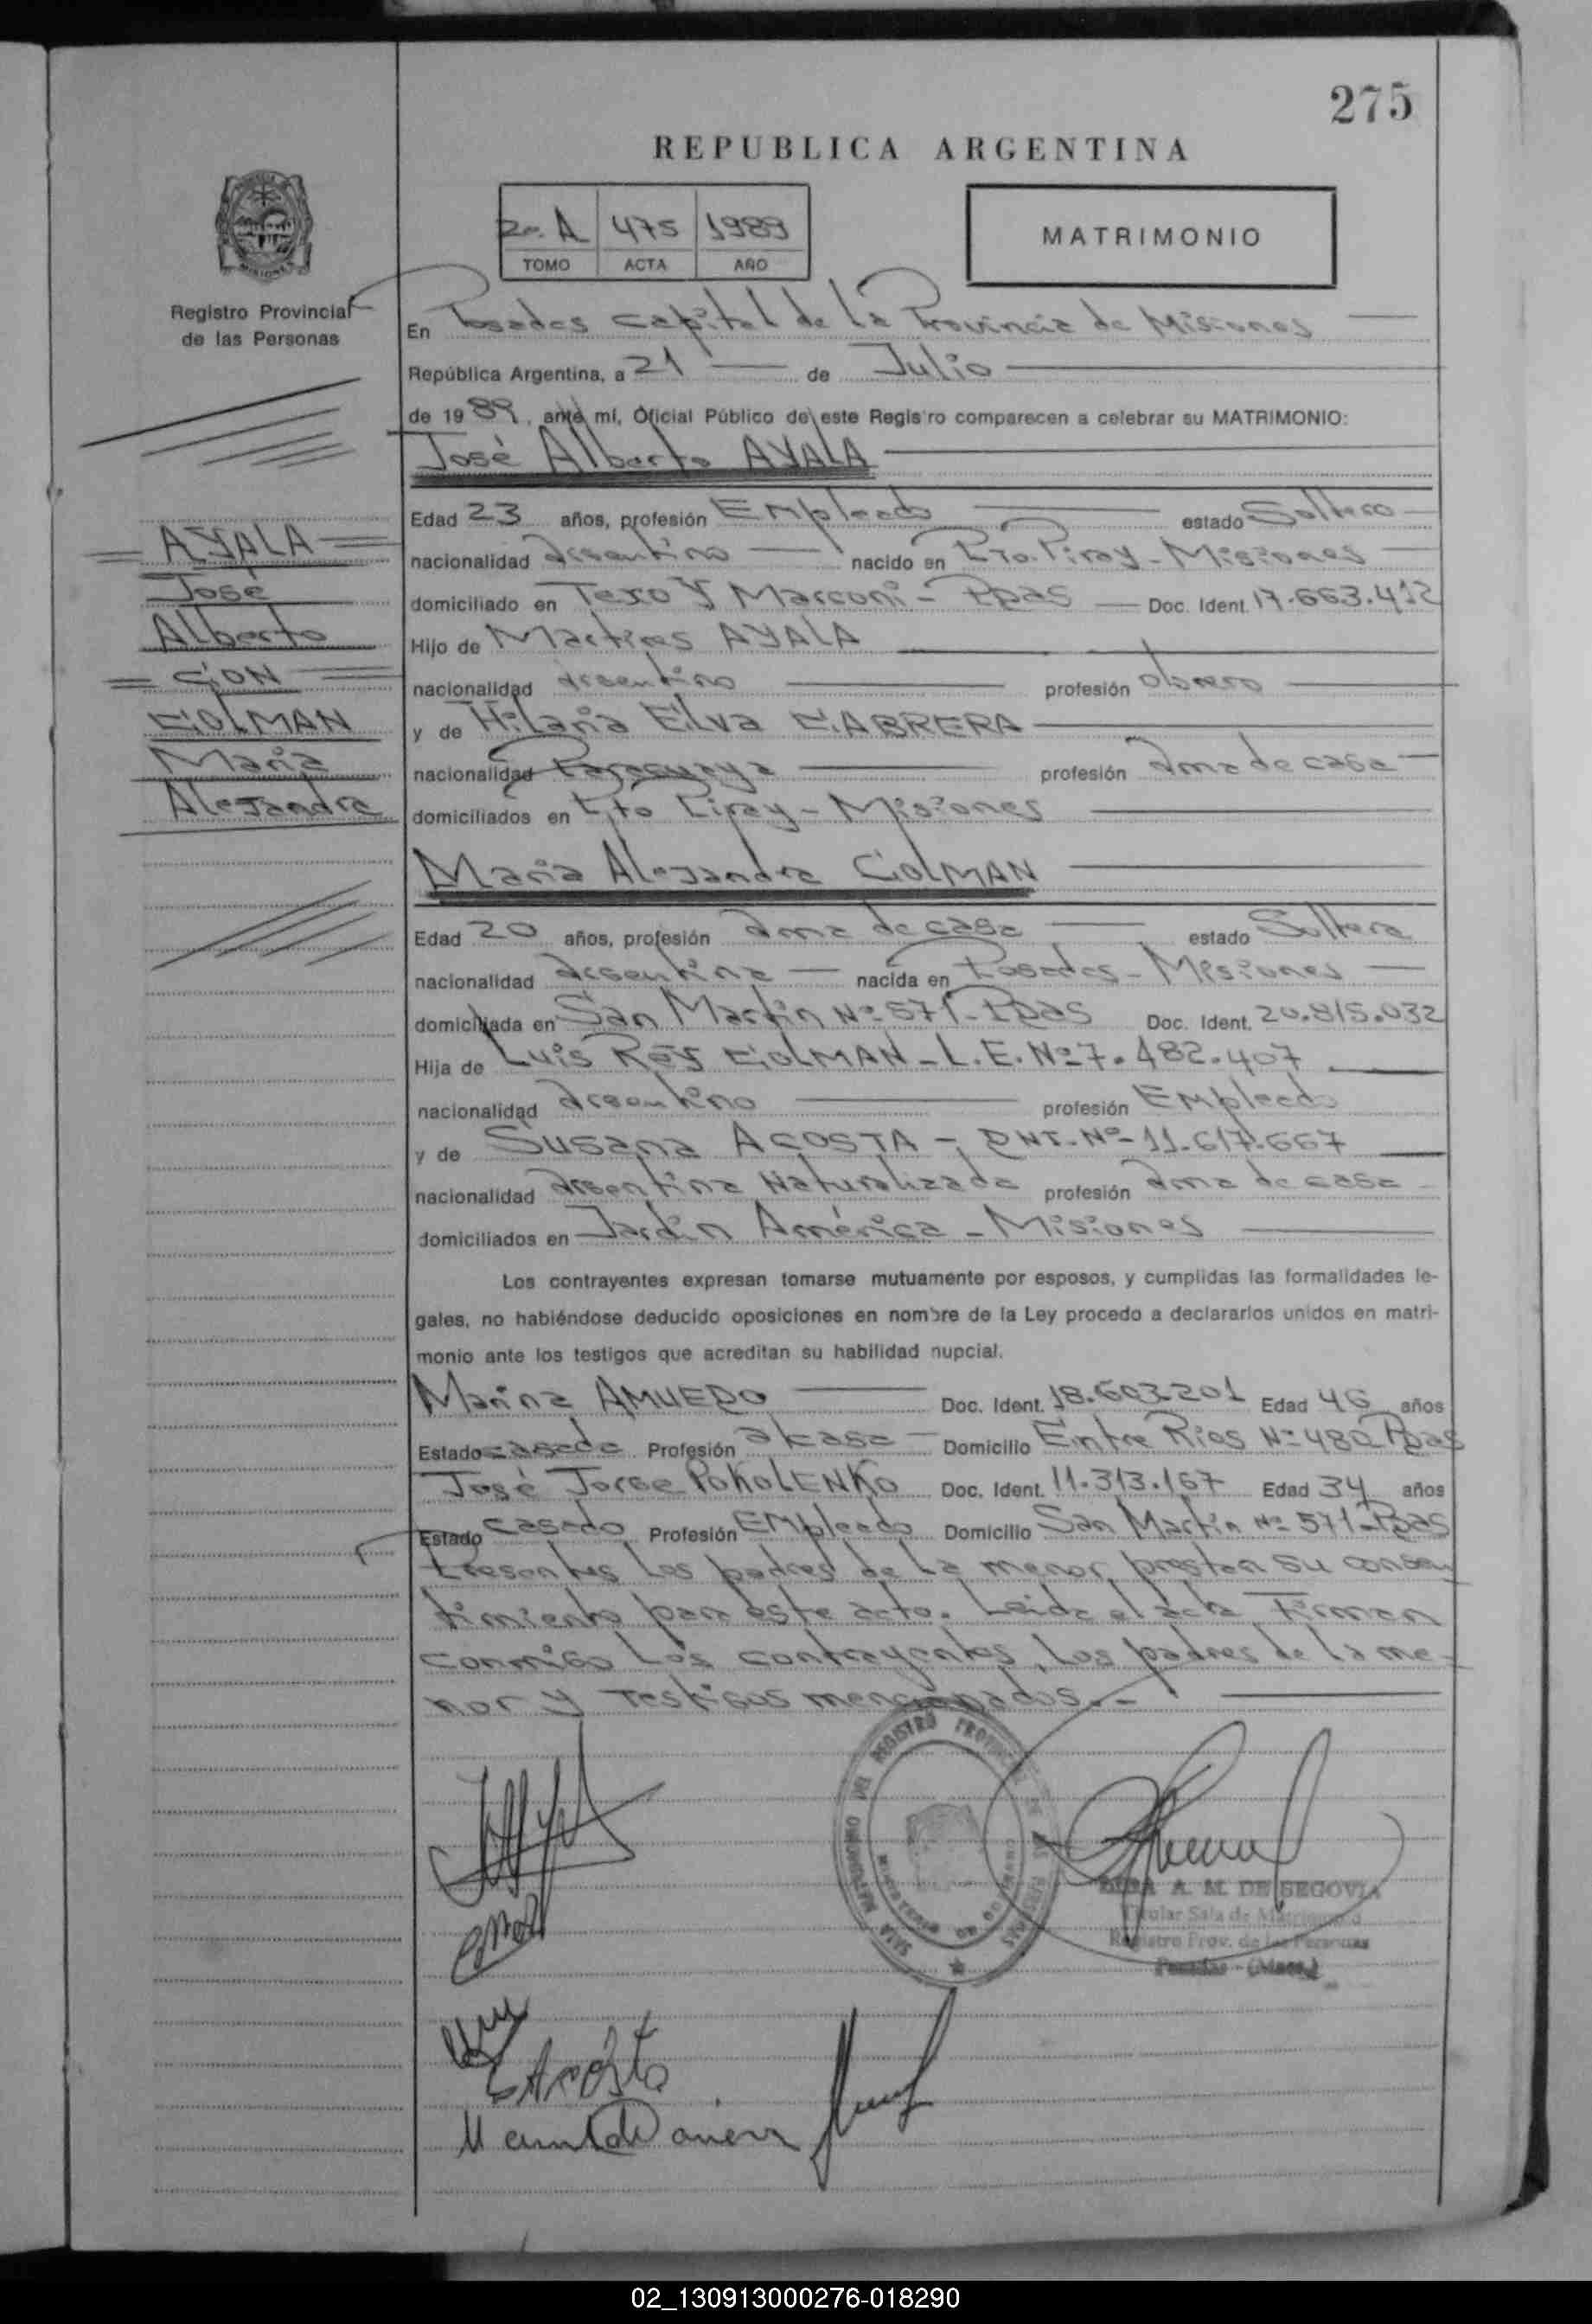 275
REPUBLICA ARGENTINA
2o. A 475 1989
TOMO ACTA AÑO
MATRIMONIO
MISIONES
Registro Provincial
de las Personas
En Posadas Capital de la Provincia de Misiones
República Argentina, a 21 de Julio
de 1989, ante mí, Oficial Público de este Registro comparecen a celebrar su MATRIMONIO:
José Alberto AYALA
Edad 23 años, profesión Empleado estado Soltero
nacionalidad argentino nacido en Pto. Piray - Misiones
domiciliado en Marconi - Pdas Doc. Ident. 17.663.412
Hijo de Martires AYALA
nacionalidad argentino profesión obrero
y de Hilaria Elva CABRERA
nacionalidad Paraguaya profesión ama de casa
domiciliados en Pto Piray - Misiones
María Alejandra COLMAN
Edad 20 años, profesión ama de casa estado Soltera
nacionalidad argentina nacida en Posadas - Misiones
domiciliada en San Martin Nº 571 - Pdas Doc. Ident. 20.815.032
Hija de Luis Rey COLMAN - L.E. Nº 7.482.407
nacionalidad argentino profesión Empleado
y de Susana ACOSTA - DNI. Nº 11.617.667
nacionalidad argentina Naturalizada profesión ama de casa
domiciliados en Jardin América - Misiones
AYALA
José
Alberto
CON
COLMAN
María
Alejandra
Los contrayentes expresan tomarse mutuamente por esposos, y cumplidas las formalidades le-
gales, no habiéndose deducido oposiciones en nombre de la Ley procedo a declararlos unidos en matri-
monio ante los testigos que acreditan su habilidad nupcial.
Marina AMUEDO Doc. Ident. 18.603.201 Edad 46 años
Estado casada Profesión a/casa Domicilio Entre Rios Nº 480 Pdas
José Jorge POKOLENKO Doc. Ident. 11.313.167 Edad 34 años
Estado casado Profesión Empleado Domicilio San Martín Nº 571 - Pdas
Presentes los padres de la menor prestan su consen
timiento para este acto. Leida el acta Firman
conmigo los contrayentes, los padres de la me-
nor y Testigos mencionados.-
SALA MATRIMONIO REGISTRO
A. M. DE SEGOVIA
Titular Sala de Matrimonio
Registro Prov. de las Personas
Posadas - (Mnes.)
Acosta
02_130913000276-018290